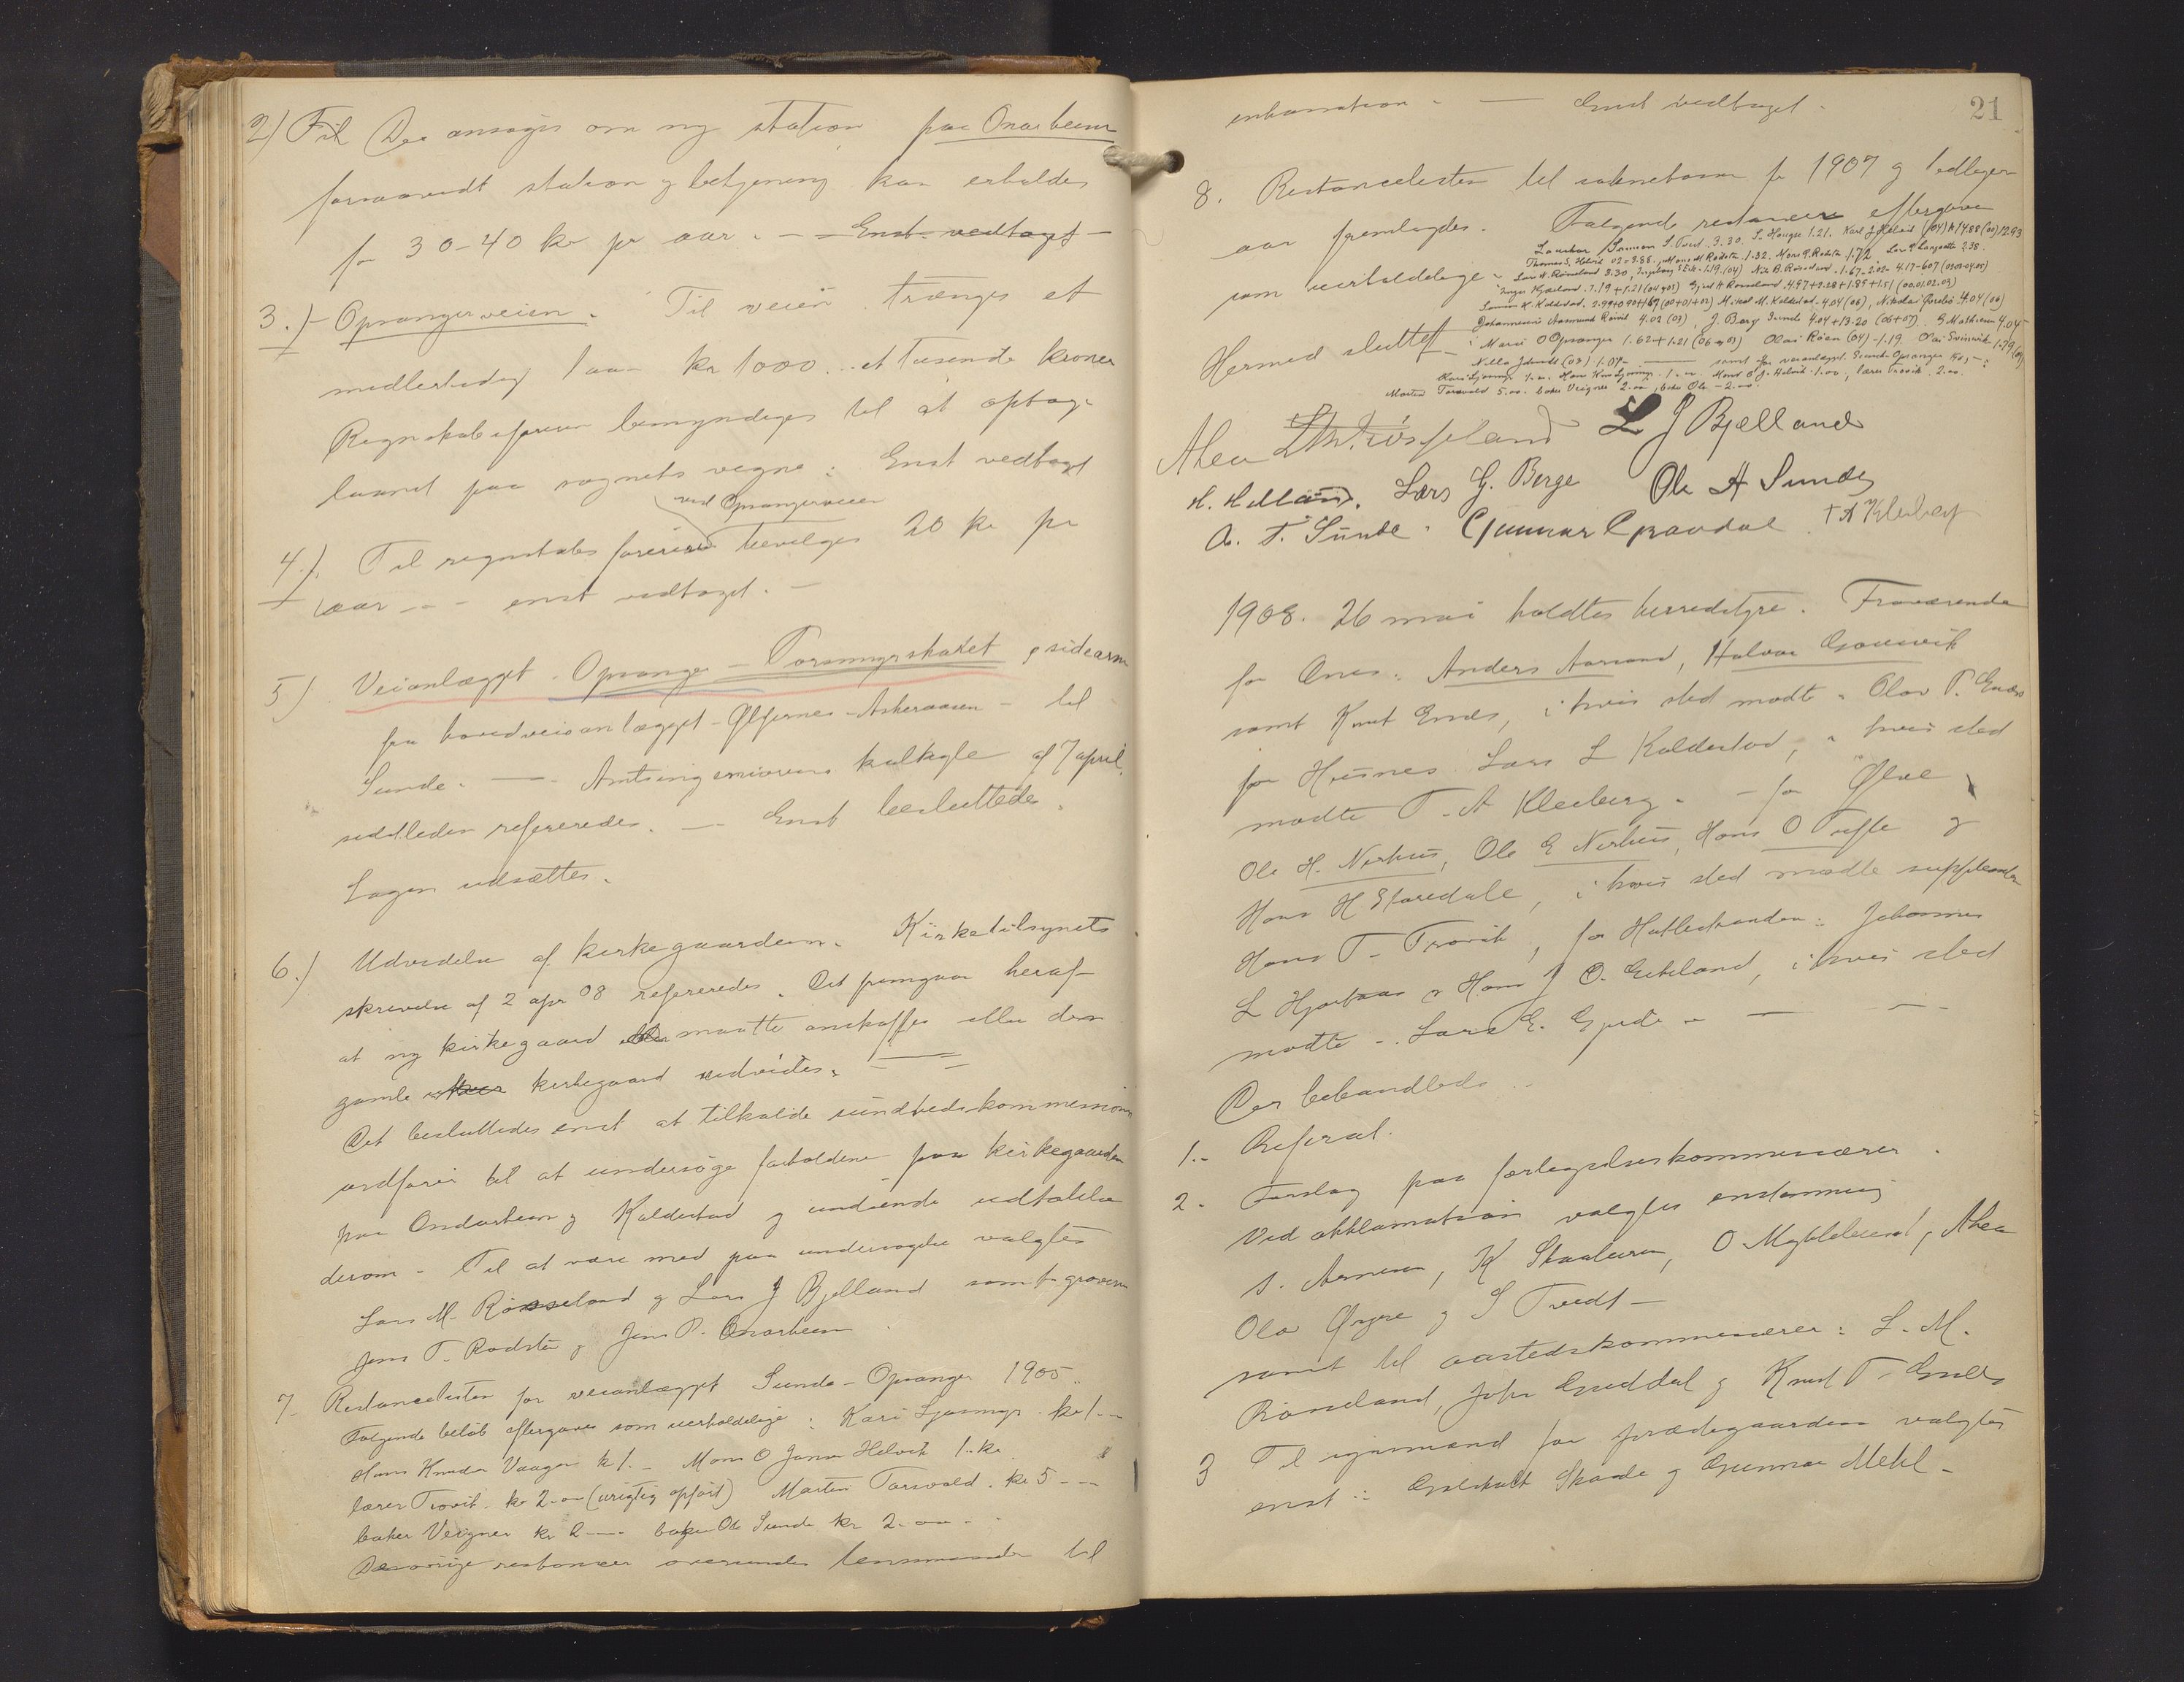 2) Til Des ansøges om ny station paa Onarheim
forsaavidt station og betjening kan erholdes
for 30-40 kr pr aar. - Enst. vedtaget -
3.) Opsangerveien. Til veien trænges et
midlertidig laan kr 1000. et tusende kroner
Regnskabsføreren bemyndiges til at optage
laanet paa sognets vegne: Enst vedtaget
ved Opsangerveien
4.) Til regnskabsføreren bevilges 20 kr pr
aar - - enst vedtaget. -
5) Veianlægget Opsanger - Porsmyrskaret og sidearm
fra hovedveianlægget - Ølfernes - Askeraasen - til
Sunde. - Amtsingeniørens kalkyle af 7 april
sidstleden refereredes. - Enst besluttedes
Sagen udsættes.
6.) Udvidelse af kirkegaarden. Kirketilsynets
skrivelse af 2 apr 08 refereredes. Det fremgaar heraf
at ny kirkegaard maatte anskaffes eller den
gamle kirkegaard udvides. -
Det besluttedes enst at tilkalde sundhedskommissionens
ordfører til at undersøge forholdene paa kirkegaarden
paa Onarheim og Kaldestad og indsende udtalelse
derom - Til at være med paa undersøgelse valgtes
Lars M. Røsseland og Lars J Bjelland samt graverne
Jens T. Rødstøe og Jens P. Onarheim
7 - Restancelisten for veianlægget Sunde - Opsanger 1905.
Følgende beløb eftergaves som uerholdelige: Kari Ljosmyr kr 1.-
Hans Knudsen Vaagen k 1. - Mons O Jensen Helvik 1. kr
lærer Trovik. kr 2.00 (urigtig opført) Marten Torsvold. kr 5 --
baker Veigner kr 2 -- baker Ole Sunde kr 2.00 -
De øvrige restancer oversendes lensmanden til
21
inkassation - - Enst vedtaget -
8. Restancelisten til sognekassen for 1907 og tidligere
aar fremlagdes. Følgende restancer eftergaves
som uerholdelige -
Samson S. Tveit. 3.30. S. Haugse 1.21. Karl J Helvik (04) 14.88 (03) 12.93
Thomas S. Helvik 02 = 3.88. Mons M Rødstø. 1.32. Mons R. Rødstø 1.72. Lars P. Langaatte 2.38.
Lars H. Røsseland 3.30, Ingeborg S Eik - 1.19 (04) Nils B. Røssland - 1.67 - 2.02 - 4.17 - 6.07
Inger Kjærland. 1.19 + 1.21 (04+03) Gjert H Rosseland. 4.97 + 2.28 + 1.89 + 1.51 (00.01.02.03)
Samson K. Kaldestad. 2.99+0.90+1.69 (00+01+02) Mikal M. Kaldestad - 4.04 (06), Nikolai Grebø. 4.04 (06)
Johannesen Aasmund Røivik 4.02 (03), J. Berg Sunde 4.04 + 13.20 (06+07). G Mathiesen 4.04
Hermed sluttet -
Marie O Opsanger 1.62 + 1.21 (06+03) Olai Røen (04) - 1.19 Olai Svinvik 1.79
samt for veianlægget Sunde Opsanger
Kari Ljosmyr 1.00. Hans Knudsen 1.00. Mons O J. Helvik. 1.00, lærer Trovik. 2.00.
Marten Torsvold 5.00. baker Veigner 2.00, baker Ole - 2.00.
L J Bjelland
H. Helland. Lars G. Berge Ole A Sunde
A. T. Sunde. Gunnar Opsandal T A Kleiberg
1908. 26 mai holdtes herredstyre. Fraværende
for Onar. Anders Aarsand, Halvor Gjøssvik
samt Knut Enæs, i hvis sted mødte - Olav P. Enæs
for Husnes Lars L Kaldestad, i hvis sted
mødte T. A Kleiberg. - for Ølve
Ole H. Nerhus, Ole E Nerhus, Hans O Tufte og
Hans H Storedale, i hvis sted mødte suppleanten
Hans T. Trovik, for Hatlestranden: Johannes
L Hjortaas og Hans J O. Eikeland, i hvis sted
mødte - Lars E. Gjerde - - -
Der behandledes -
1. - Referat.
2. Forslag paa forligelseskommissærer.
Ved akklamation valgtes enstemmig
S. Arnesen, K Skaaluren, O Myklebust, Aken
Ola Øygre og S Tvedt -
samt til aastedskommissærer: L. M.
Røsseland, John Guddal og Knut T. Enæs
3 Til synsmænd for prædegaarden valgtes
enst: Godskalk Skaale og Gunnar Mehl -